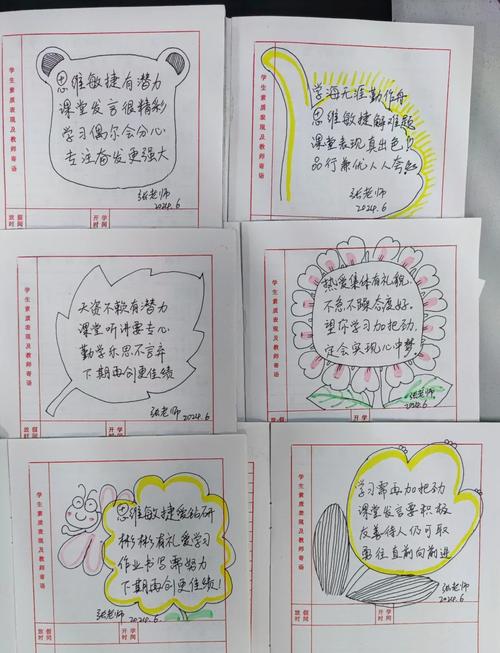 学生素质表现及教师寄语
思维敏捷有潜力
课堂发言很精彩
学习偶尔会分心
专注奋发更强大
张老师
2024.6
放假时间
开学时间
学生素质表现及教师寄语
学海无涯勤作舟
思维敏捷解难题
课堂表现真出色
品行兼优人人夸
张老师
2024.6
放假时间
开学时间
学生素质表现及教师寄语
天资不赖有潜力
课堂听讲要专心
勤学乐思不言弃
下期再创更佳绩
张老师
2024.6
放假时间
开学时间
学生素质表现及教师寄语
热爱集体有礼貌
不急不躁态度好。
望你学习加把劲
定会实现心中梦。
张老师
2024.6
放假时间
开学时间
学生素质表现及教师寄语
思维敏捷爱钻研
彬彬有礼爱学习
作业书写需努力
下期再创更佳绩!
张老师
2024.6
放假时间
开学时间
学生素质表现及教师寄语
学习需再加把劲
课堂发言要积极
友善待人仍可取
勇往直前向前进
张老师
2024.6
放假时间
开学时间